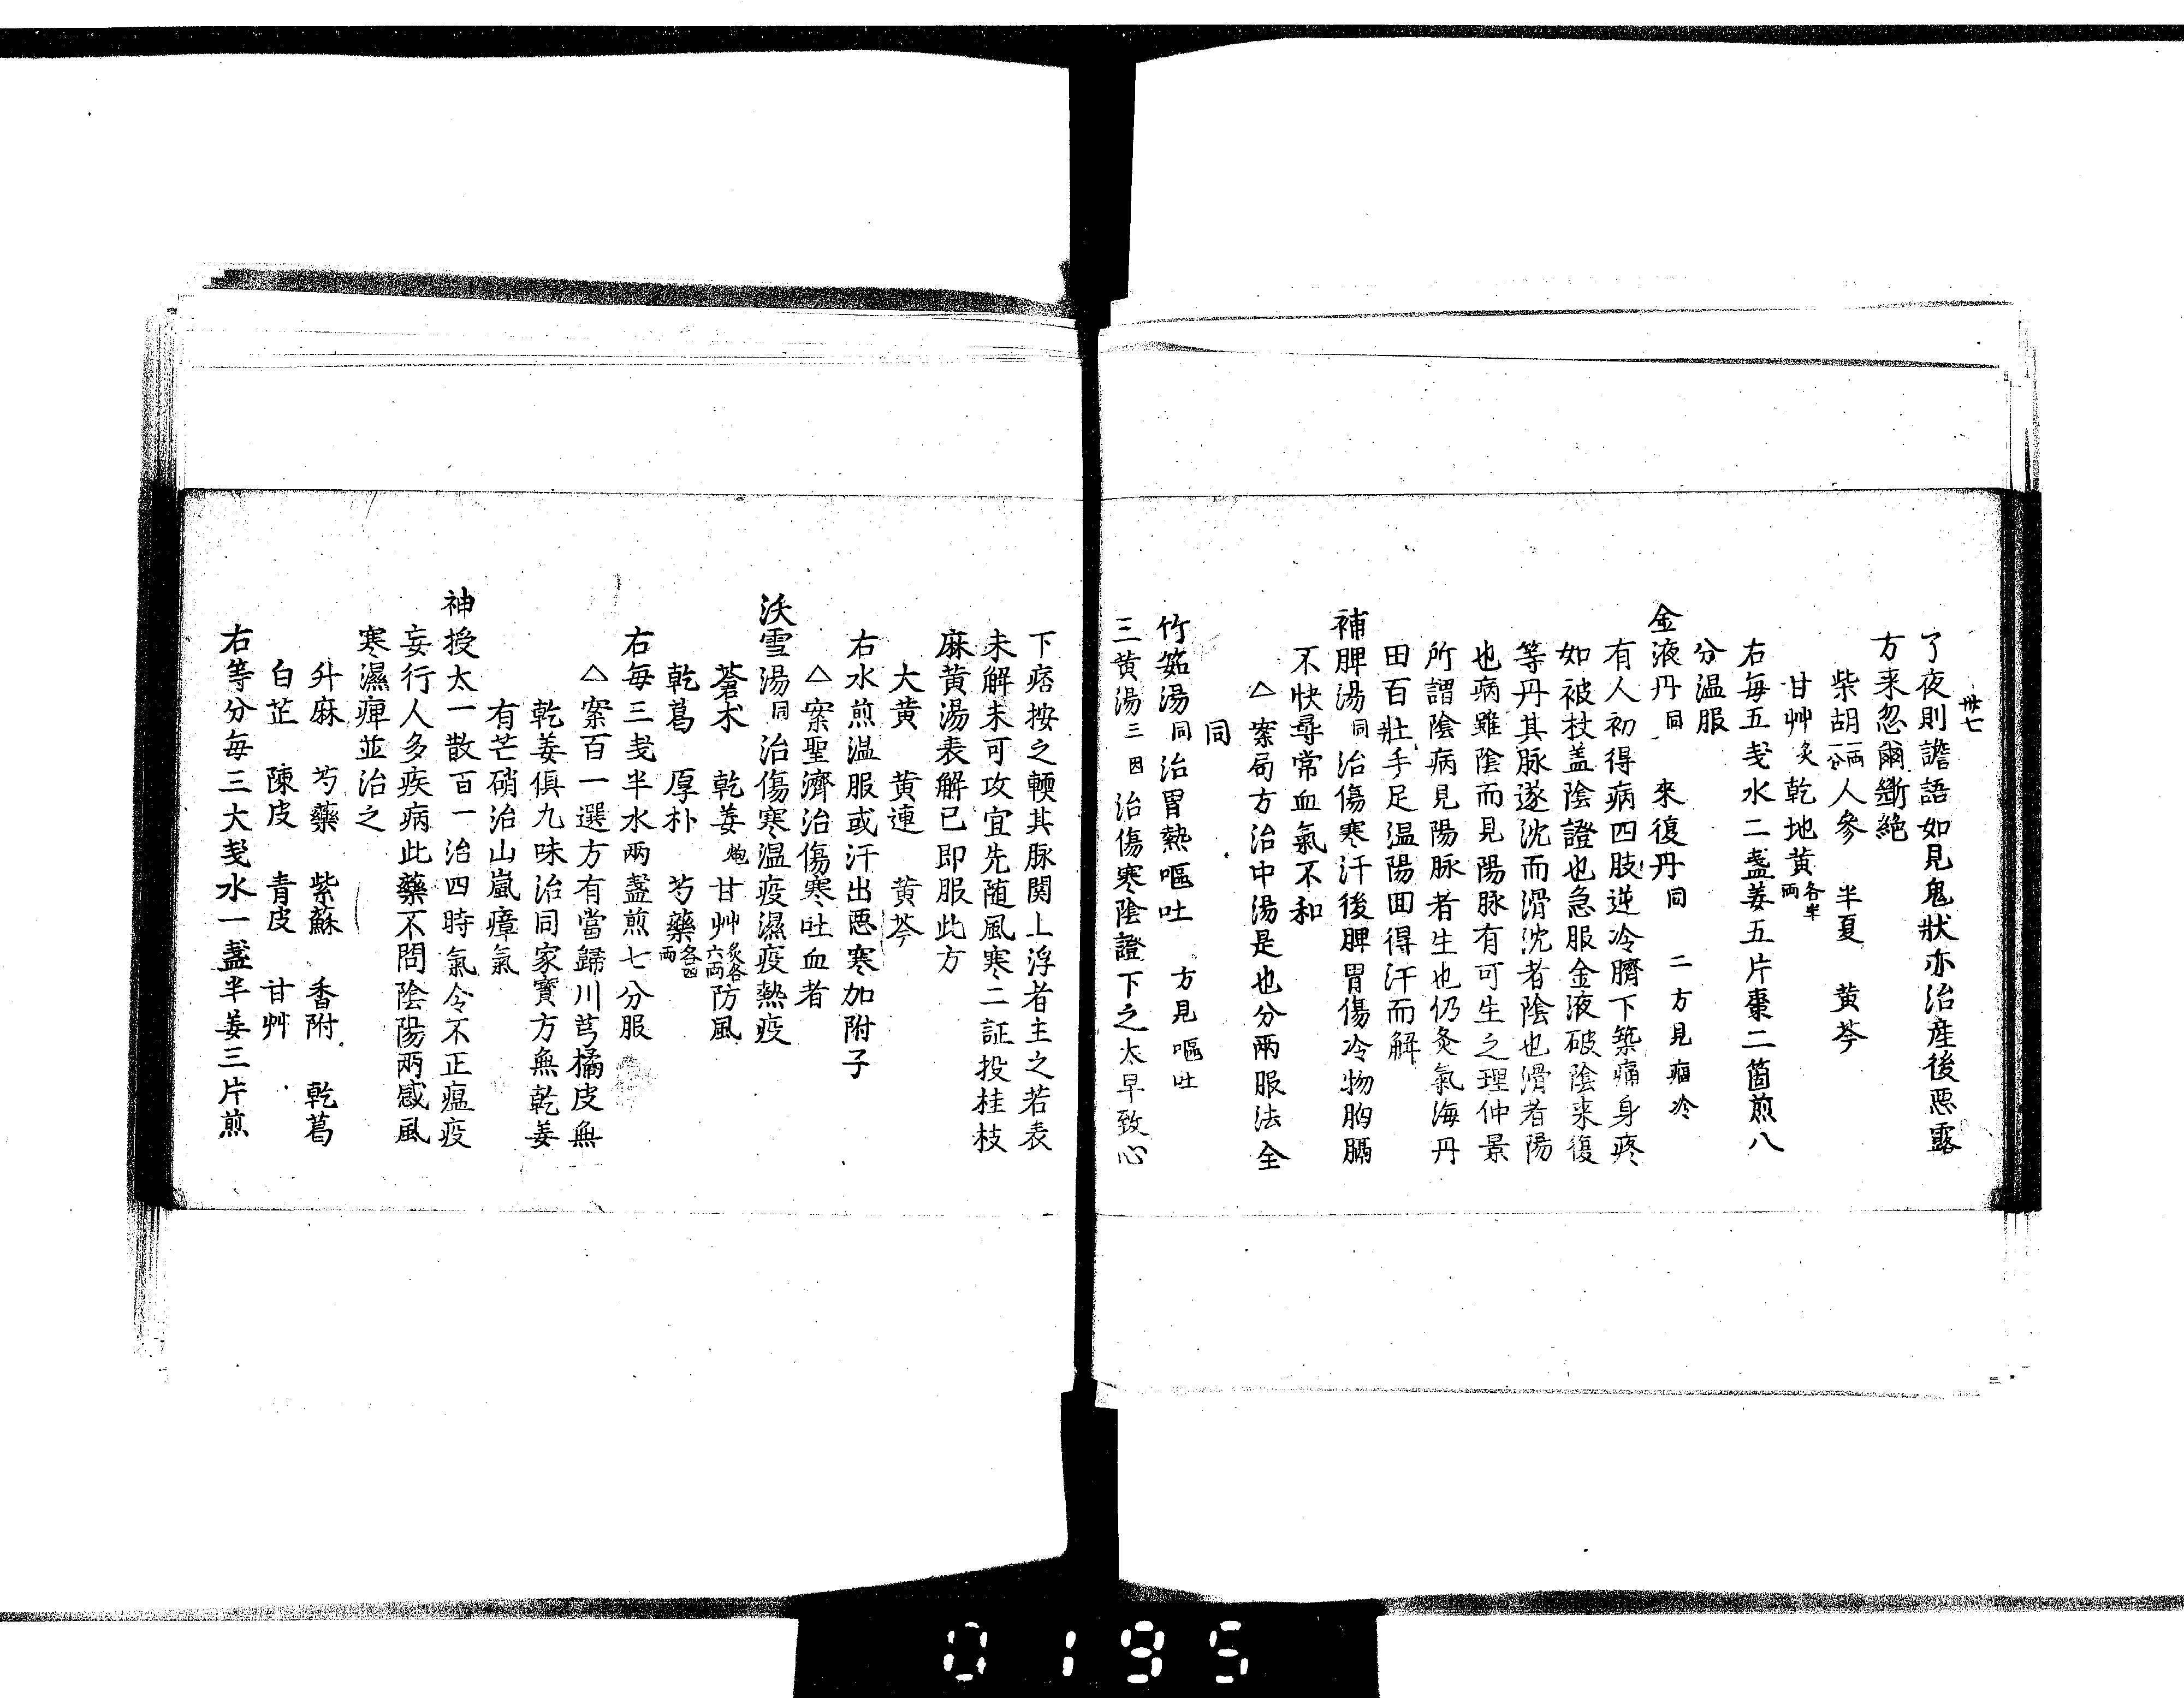 卅七
了夜則譫語如見鬼狀亦治産後惡露
方来忽爾斷絶
柴胡一両一分人參　半夏　黄芩
甘艸炙乾地黄各半両
右毎五戔水二盞姜五片棗二箇煎八
分温服
金液丹同　來復丹同　二方見痼冷
有人初得病四肢逆冷臍下築痛身疼
如被杖盖陰證也急服金液破陰来復
等丹其脉遂沈而滑沈者陰也滑者陽
也病雖陰而見陽脉有可生之理仲景
所謂陰病見陽脉者生也仍灸氣海丹
田百壯手足温陽囬得汗而解
補脾湯同治傷寒汗後脾胃傷冷物胸膈
不快尋常血氣不和
△案局方治中湯是也分兩服法全
同
竹筎湯同治胃熱嘔吐　方見嘔吐
三黄湯三因治傷寒陰證下之太早致心
下痞按之輭其脉関上浮者主之若表
未解未可攻宜先随風寒二証投桂枝
麻黄湯表解已即服此方
大黄　黄連　黄芩
右水煎温服或汗出惡寒加附子
△案聖濟治傷寒吐血者
沃雪湯同治傷寒温疫濕疫熱疫
蒼朮　乾姜炮甘艸炙各六両防風
乾葛　厚朴　芍藥各四両
右毎三戔半水兩盞煎七分服
△案百一選方有當歸川芎橘皮無
乾姜俱九味治同家寳方無乾姜
有芒硝治山嵐瘴氣
神授太一散百一治四時氣令不正瘟疫
妄行人多疾病此藥不問陰陽兩感風
寒濕痺並治之
升麻　芍藥　紫蘇　香附　乾葛
白芷　陳皮　青皮　甘艸
右等分毎三大戔水一盞半姜三片煎
0195